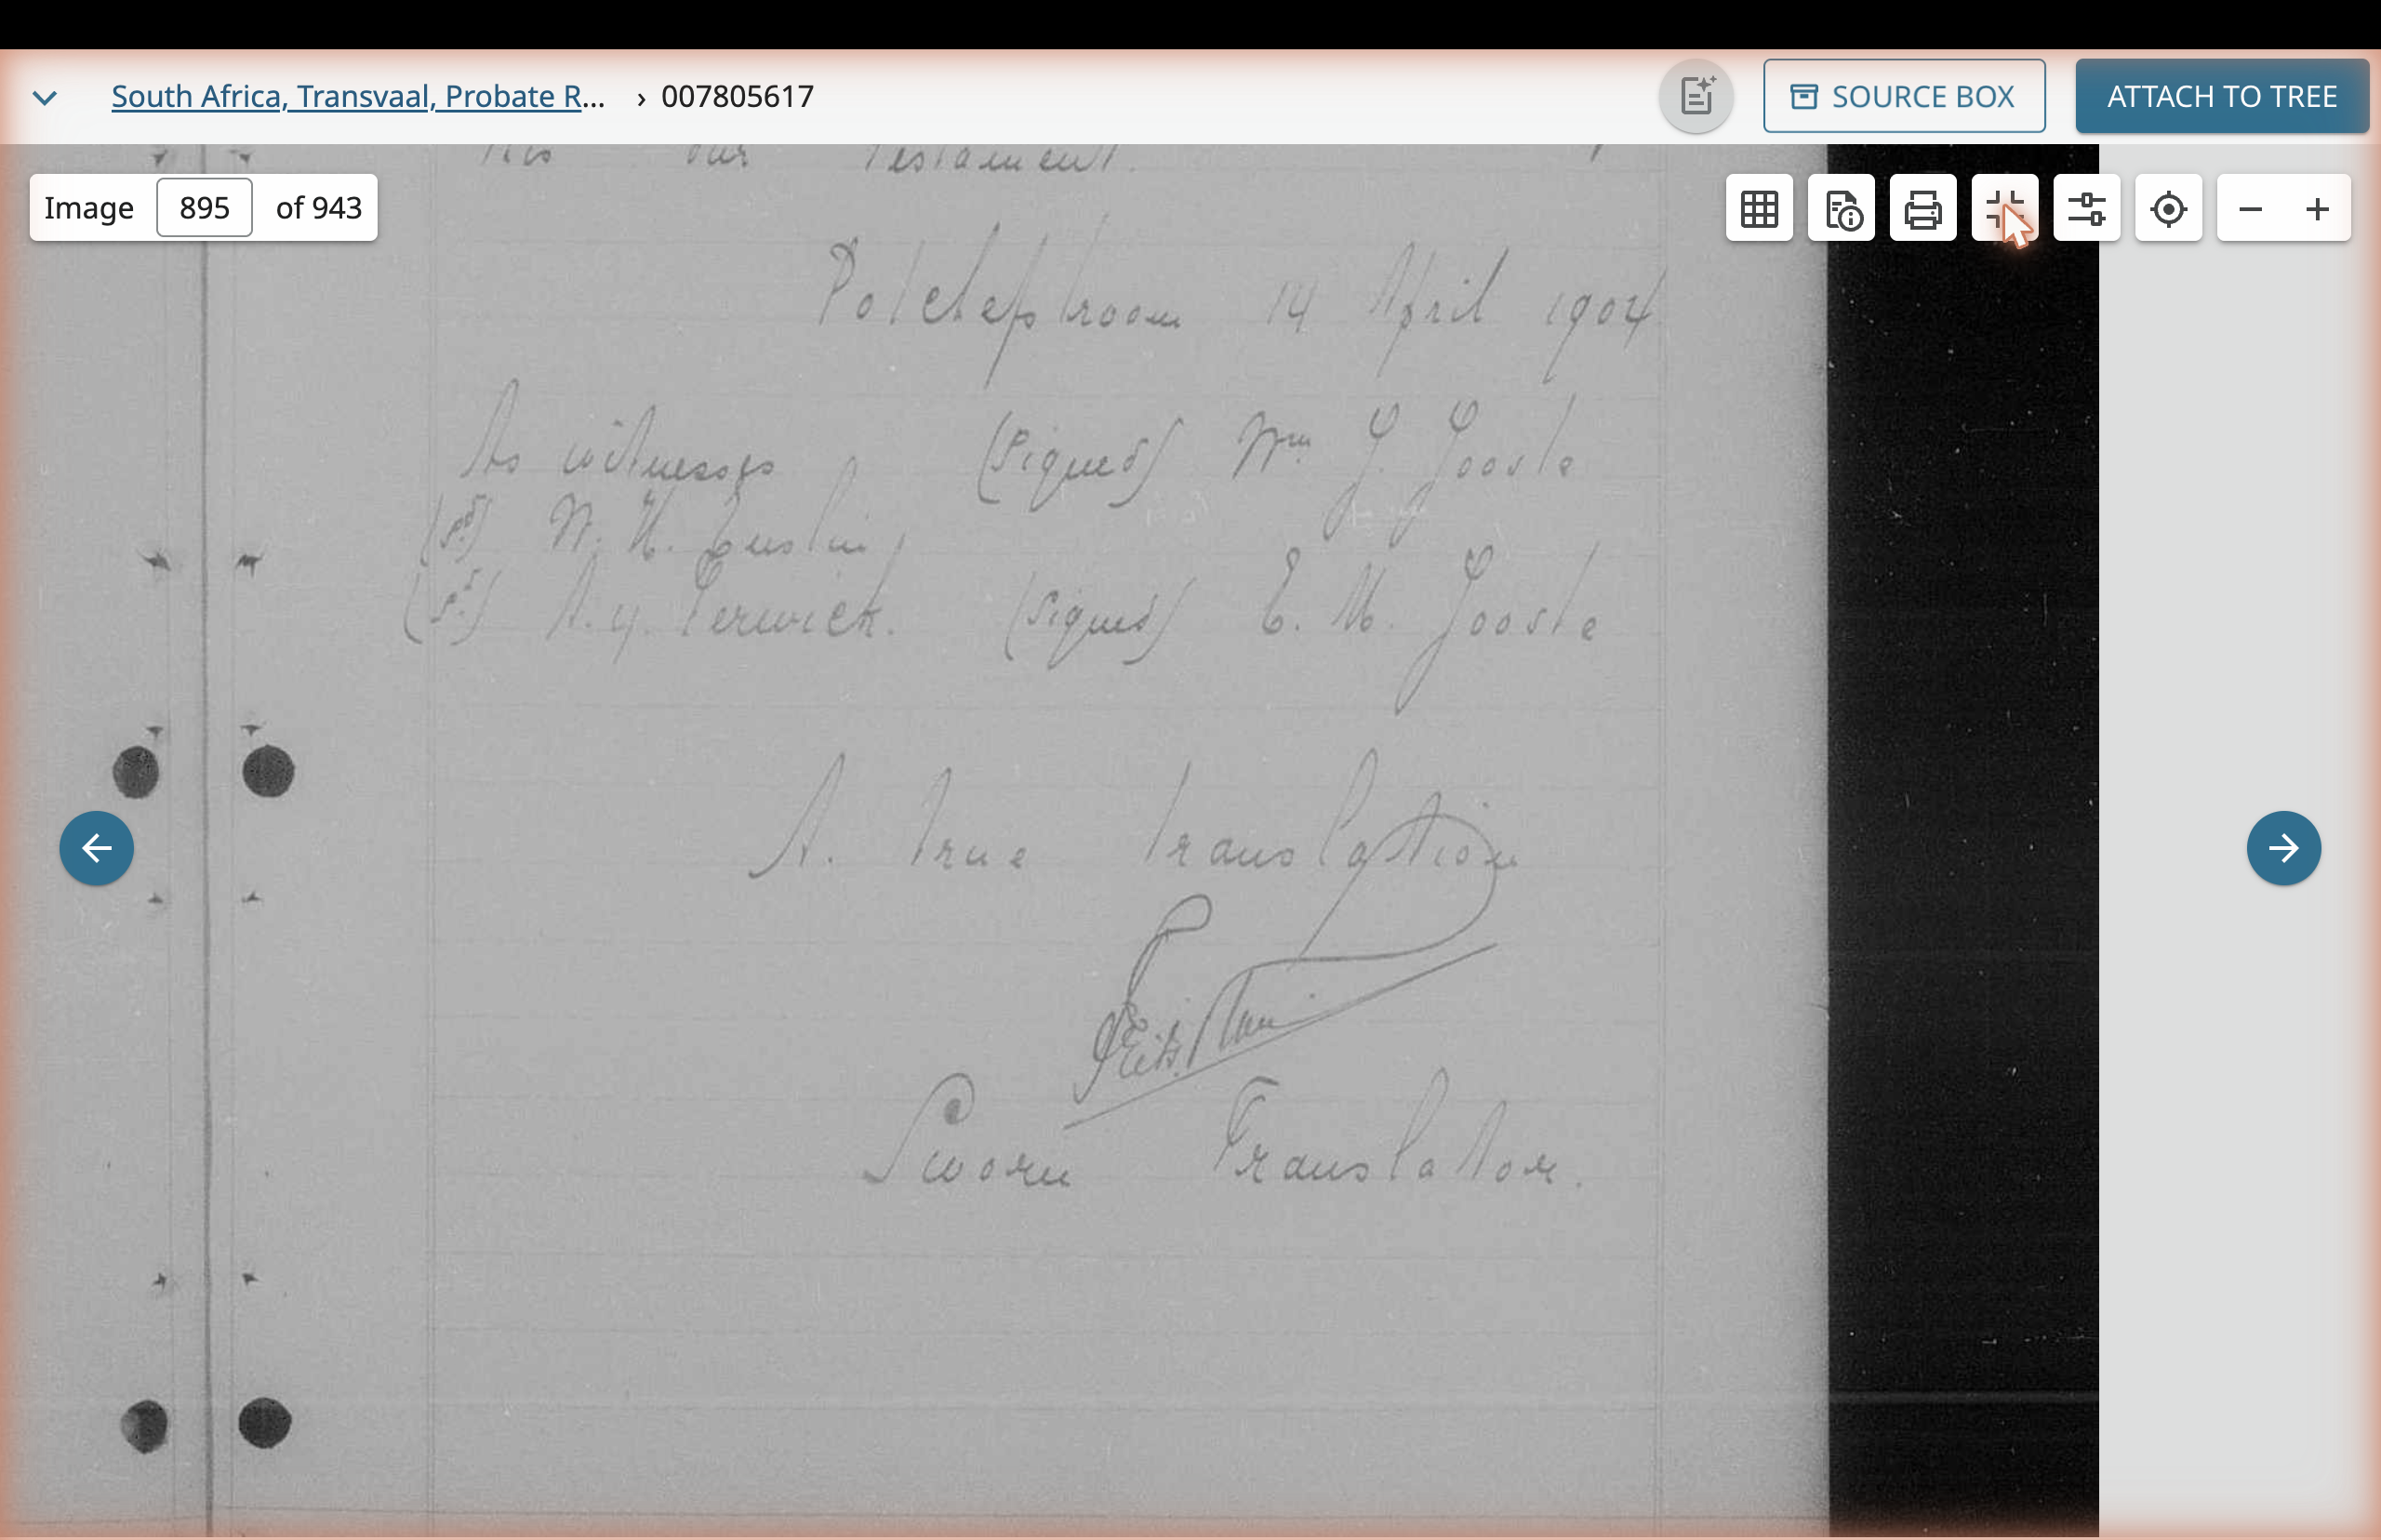 South Africa, Transvaal, Probate R... › 007805617
SOURCE BOX
ATTACH TO TREE
Image 895 of 943
this our Testament.
Potchefstroom 14 April 1904
As witnesses (Signed) Wm. J. Jooste
(Sd) W. H.
(Sd) A. y. Terwick. (Signed) E. M. Jooste
A. True Translation
Sworn Translator.